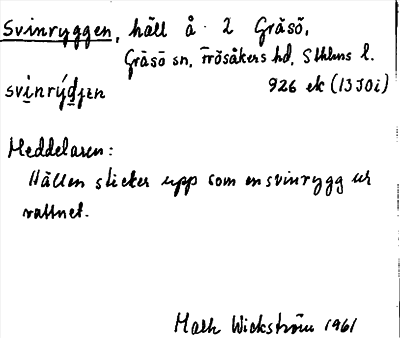 Svinryggen, häll å 2 Gräsö,
Gräsö sn, Frösåkers hd, Sthlms l.
svi̲nrýd̲jen 926 ek (13J0i)
Meddelaren:
Hällen sticker upp som en svinrygg ur
vattnet.
Math Wickström 1961